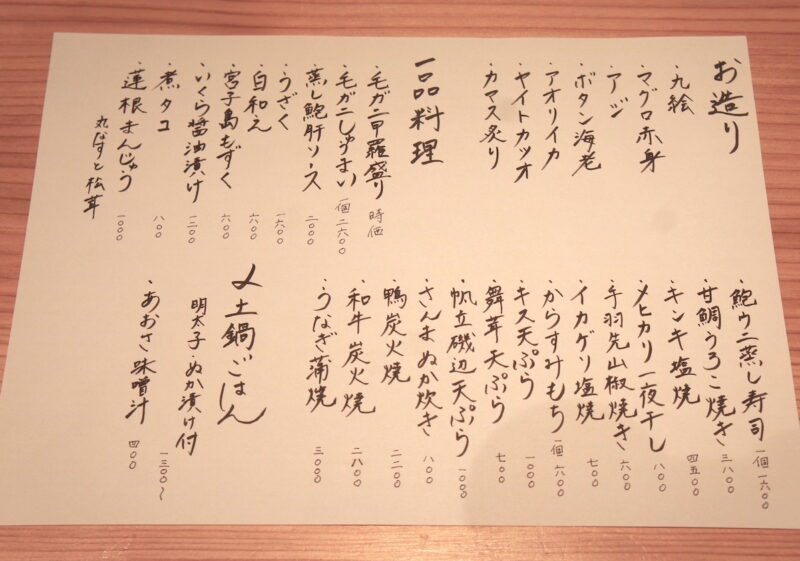 お造り
・九絵
・マグロ赤身
・アジ
・ボタン海老
・アオリイカ
・ヤイトカツオ
・カマス炙り
一品料理
・毛ガニ甲羅盛り 時価
・毛ガニしゅうまい 一個 二六〇〇
・蒸し鮑肝ソース 二〇〇〇
・うざく 一六〇〇
・白和え 六〇〇
・宮子島もずく 六〇〇
・いくら醤油漬け 一二〇〇
・煮タコ 八〇〇
・蓮根まんじゅう 一〇〇〇
丸なすと松茸
・鮑ウニ蒸し寿司 一個 一六〇〇
・甘鯛うろこ焼き 三八〇〇
・キンキ塩焼 四五〇〇
・メヒカリ一夜干し 八〇〇
・手羽先山椒焼き 六〇〇
・イカゲソ塩焼 七〇〇
・からすみもち 一個 六〇〇
・キス天ぷら 一〇〇〇
・舞茸天ぷら 七〇〇
・帆立磯辺天ぷら 一〇〇〇
・さんまぬか炊き 八〇〇
・鴨炭火焼 二二〇〇
・和牛炭火焼 二八〇〇
・うなぎ蒲焼 三〇〇〇
〆土鍋ごはん
明太子・ぬか漬け付 一三〇〇〜
・あおさ味噌汁 四〇〇